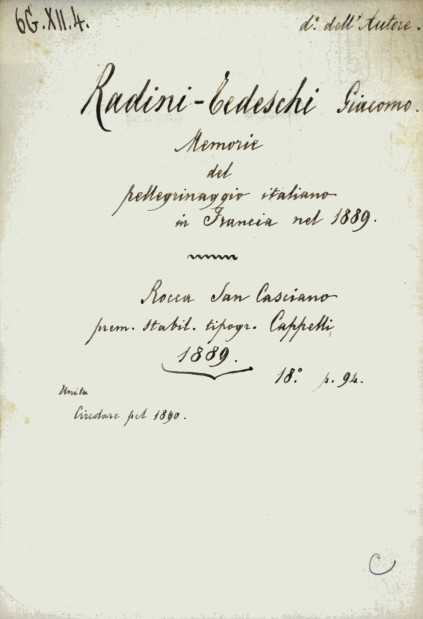 6G.XII.4.
d°. dell'Autore.
Radini-Tedeschi Giacomo.
Memorie
del
pellegrinaggio italiano
in Francia nel 1889.
Rocca San Casciano
prem. stabil. tipogr. Cappelli,
1889.
18.° p. 94.
Unita
Circolare pel 1890.
C